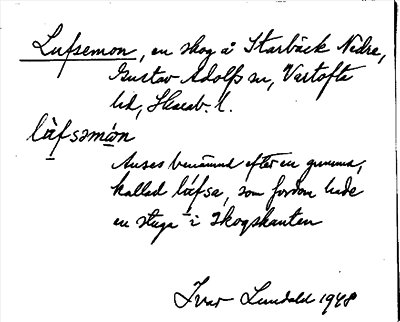 Lufsemon, en skog å Starbäck Nedre,
Gustav Adolfs sn, Vartofta
hd, Skarab. l.
lùfsəmón
Anses benämnd efter en gumma,
kallad lúfsa, som fordom hade
en stuga i skogskanten
Ivar Lundahl 1948